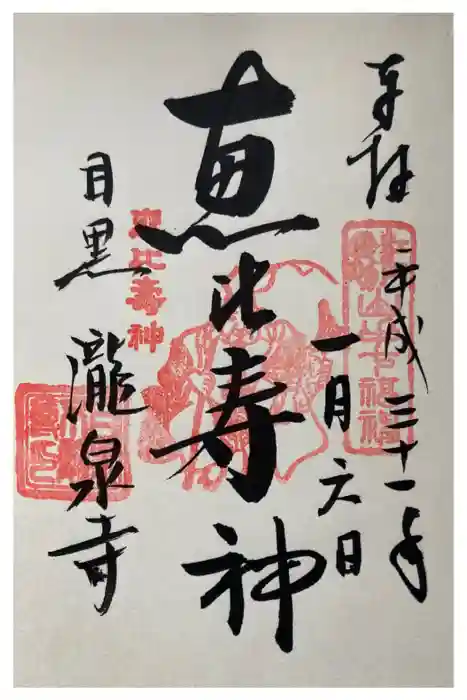 奉拝
平成三十一年
一月六日
恵比寿神
恵比寿神
目黒
瀧泉寺